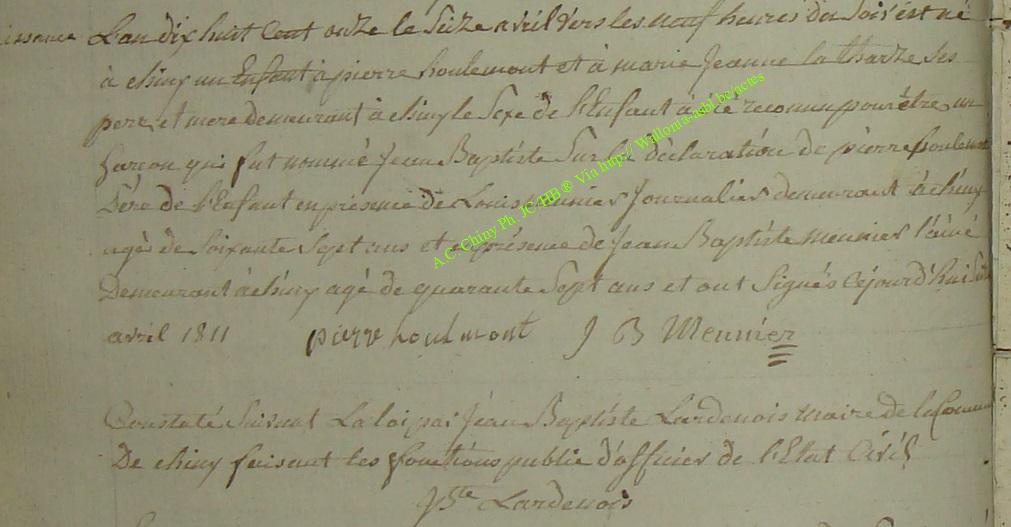 issance L'an dix huit Cent onze le Seize avril vers les neuf heures du Soir est né
à chiny un Enfant à pierre houlemont et à marie Jeanne la tharte Ses
pere et mere demeurant à chiny le Sexe de l'Enfant à été reconnu pour être un
Garcon qui fut nommé Jean Baptiste Sur la déclaration de pierre houlemont
Père de l'Enfant en présence de Louis meunier Journalier demeurant à chiny
agé de Soixante Sept ans et en présence de Jean Baptiste meunier l'ainé
Demeurant à chiny agé de quarante Sept ans et ont Signés Cejourd'hui Seize
avril 1811 pierre houlmont J B Meunier
Constaté Suivant La loi par Jéan Baptiste Lardenois maire de la Commune
De chiny faisant les fonctions public d'officier de l'Etat Civil
JBte Lardenois
A.C. Chiny Ph. JC HB® Via http:// Wallonia-asbl.be/actes